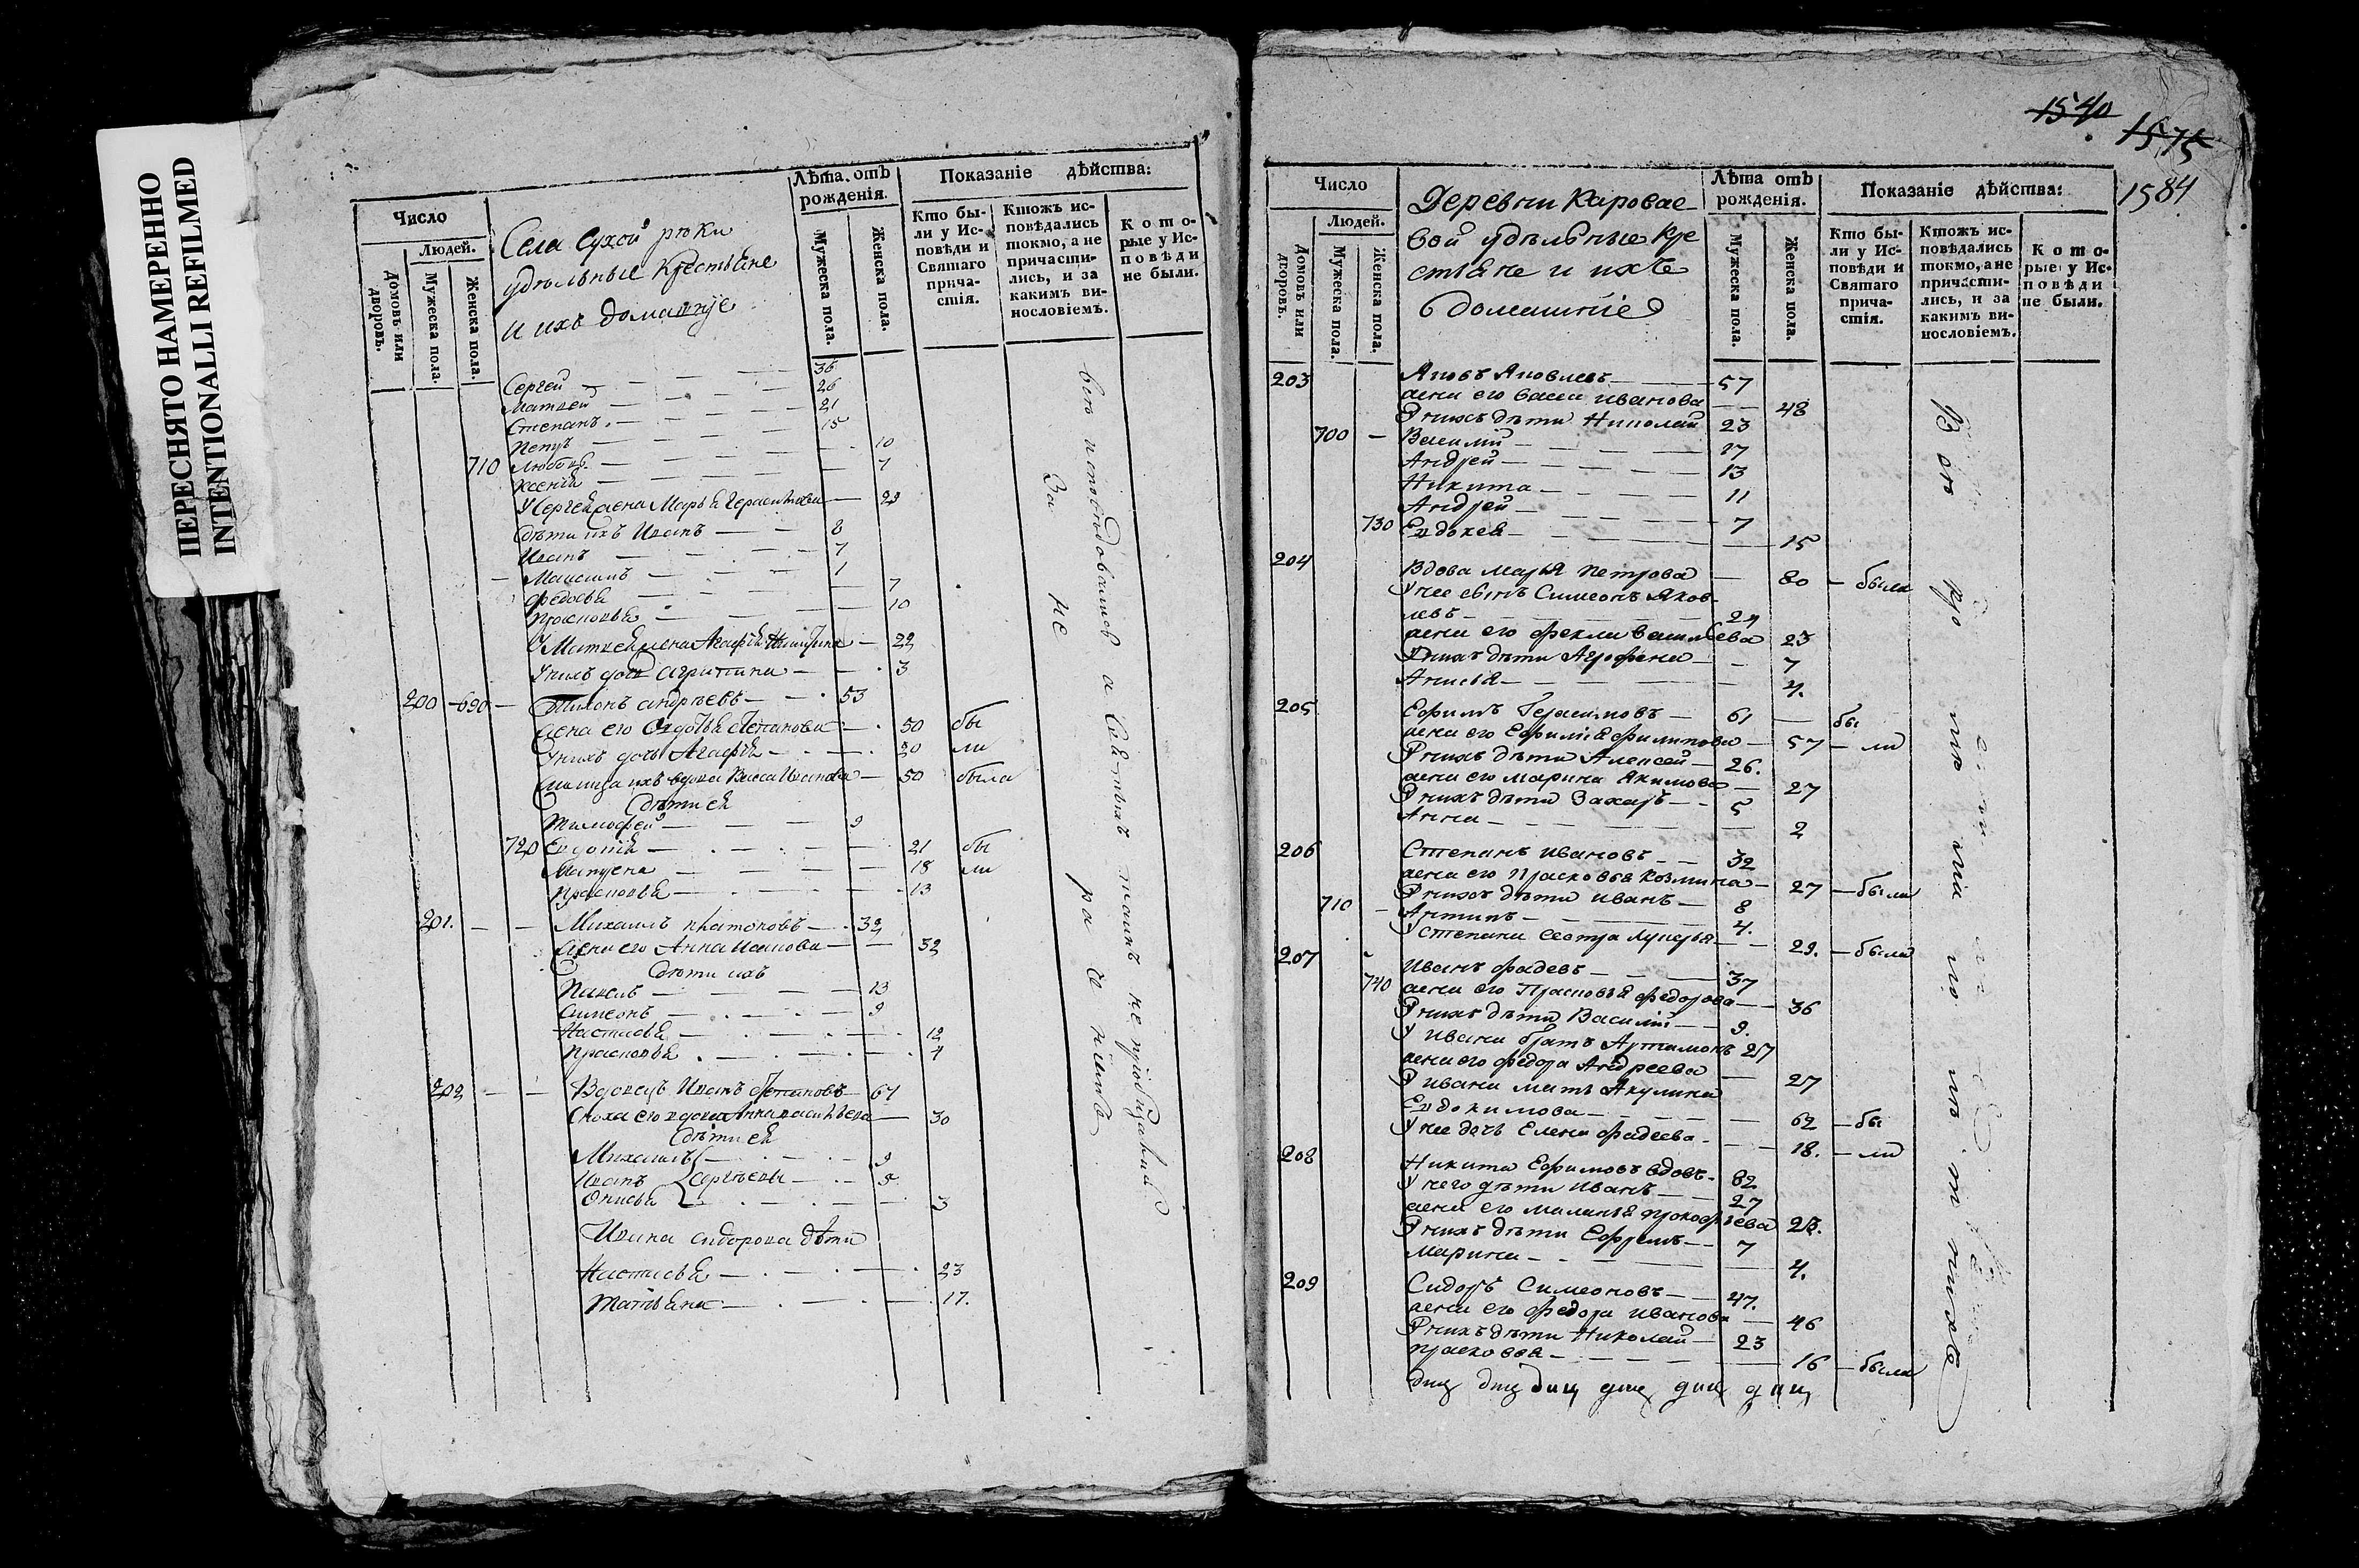 ПЕРЕСНЯТО НАМЕРЕННО
INTENTIONALLI REFILMED
Число
Людей.
Домовъ или дворовъ.
Мужеска пола.
Женска пола.
Села Сухой рѣки
удѣльные крестьяне
и ихъ домашніе
Лѣта отъ рожденія.
Мужеска пола.
Женска пола.
Показаніе дѣйства:
Кто были у Исповѣди и Святаго причастія.
Ктожъ исповѣдались токмо, а не причастились, и за какимъ винословіемъ.
Которые у Исповѣди не были.
Сергей 36
Матвей 26
Степанъ 21
Петръ 15
710 Любовь 10
Ксенія 7
У Сергея жена Марья Герасимова 29
Дѣти ихъ Иванъ 8
Иванъ 7
Максимъ 1
Федосья 7
Прасковья 10
У Матвея жена Агафья 22
У нихъ дочь Агрипина 3
200 690 Тихонъ Андреевъ 53
жена его Авдотья Степанова 50 бы
У нихъ дочь Агафья 20 ли
вдова Васса Иванова 50 была
Дѣти ея
Тимофей 9
720 Евдокия 21 бы
18 ли
Прасковья 13
201. Михаилъ 32
жена его Анна 32
Дѣти ихъ
Павелъ 13
Симеонъ 9
Настасья 12
Прасковья 7
202 Вдовецъ Иванъ Степановъ 67
Сноха его вдова Анна Васильева 30
Дѣти ея
Михаилъ 9
Иванъ Сергѣевы 5
Онисья 3
Ивана Сидорова дѣти
Настасья 23
Татьяна 17.
1540
1575
1584
Число
Людей.
Домовъ или дворовъ.
Мужеска пола.
Женска пола.
Деревни Каровае-
вой удѣльные кре
стьяне и ихъ
домашніе
Лѣта отъ рожденія.
Мужеска пола.
Женска пола.
Показаніе дѣйства:
Кто были у Исповѣди и Святаго причастія.
Ктожъ исповѣдались токмо, а не причастились, и за какимъ винословіемъ.
Которые у Исповѣди не были.
203 Яковъ Яковлевъ 57
жена его Васса Иванова 48
У нихъ дѣти Николай 23
700 Василій 17
Андрей 13
Никита 11
Андрей 7
730 Евдокея 15
204 Вдова Марья Петрова 80 была
У нее сынъ Симеонъ Яков-
левъ
жена его Фекла Васильева 23
У нихъ дѣти Агрофена 7
Анисья 4.
205 Ефимъ Герасимовъ 61 бы
жена его Ефимія Филипова 57 ли
У нихъ дѣти Алексей 26.
жена его Марина Якимова 27
У нихъ дѣти Захаръ 5
Анна 2
206 Степанъ Ивановъ 32
жена его Прасковья Козмина 27 были
У нихъ дѣти Иванъ 8
710 Антипъ 4.
У Степана сестра Лукерья 29. была
207 Иванъ Фадевъ 37
740 жена его Прасковья Федорова 36
У нихъ дѣти Василій 9.
У Ивана братъ Артамонъ 27
жена его Федора Андреева 27
У Ивана мать Акулина
Евдокимова 62 бы
У нее дочь Елена Фадеева 18. ли
208 Никита Ефимовъ вдовъ 82
У него дѣти Иванъ 27
жена его Маланья Прокофьева 28.
У нихъ дѣти Ефремъ 7
Марина 4.
209 Сидоръ Симеоновъ 47.
жена его Федора Иванова 46
У нихъ дѣти Николай 23
Прасковья 16 была